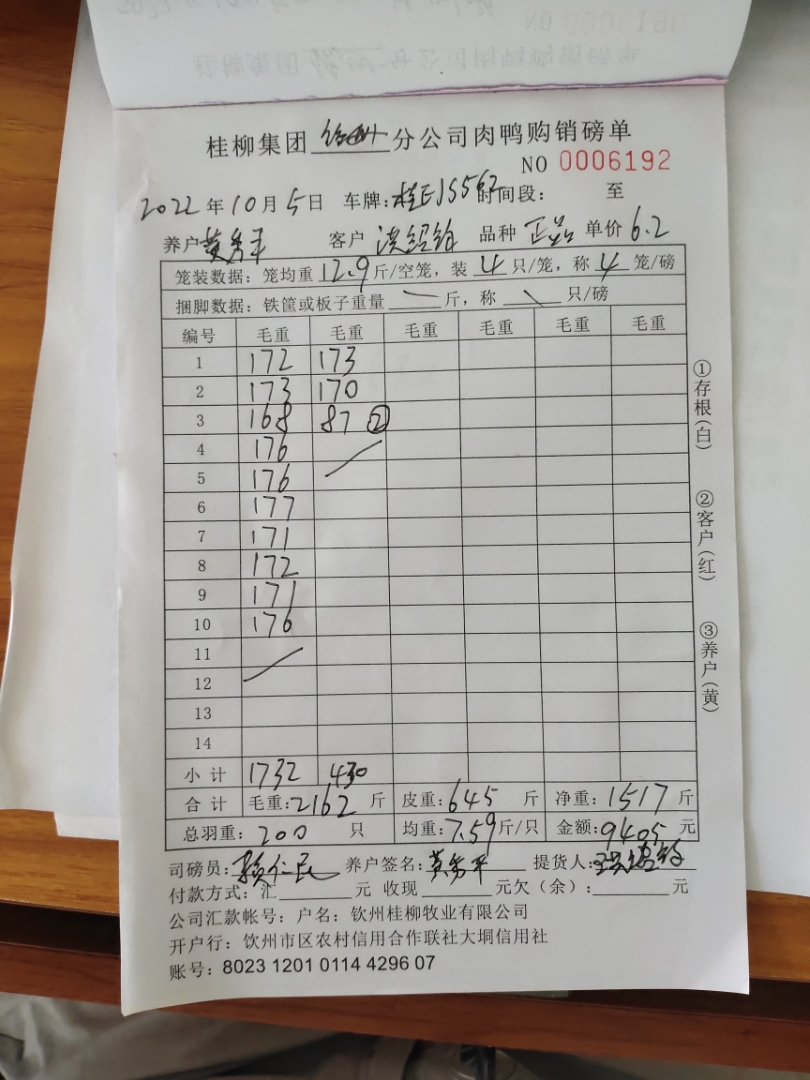 桂柳集团 钦州 分公司肉鸭购销磅单
NO 0006192
2022年10月5日 车牌: 时间段: 至
养户 黄秀平 客户 洪绍钦 品种 正品 单价 6.2
笼装数据:笼均重 12.9 斤/空笼,装 4 只/笼,称 4 笼/磅
捆脚数据:铁筐或板子重量 斤,称 只/磅
编号 毛重 毛重 毛重 毛重 毛重 毛重
1 172 173
2 173 170
3 168 87 ②
4 176
5 176
6 177
7 171
8 172
9 171
10 176
11
12
13
14
小计 1732 430
合计 毛重:2162 斤 皮重:645 斤 净重:1517 斤
总羽重:200 只 均重:7.59斤/只 金额:9405 元
司磅员: 养户签名:黄秀平 提货人:
付款方式:汇 元 收现 元欠(余): 元
公司汇款帐号:户名:钦州桂柳牧业有限公司
开户行:钦州市区农村信用合作联社大垌信用社
账号:8023 1201 0114 4296 07
①存根(白)
②客户(红)
③养户(黄)